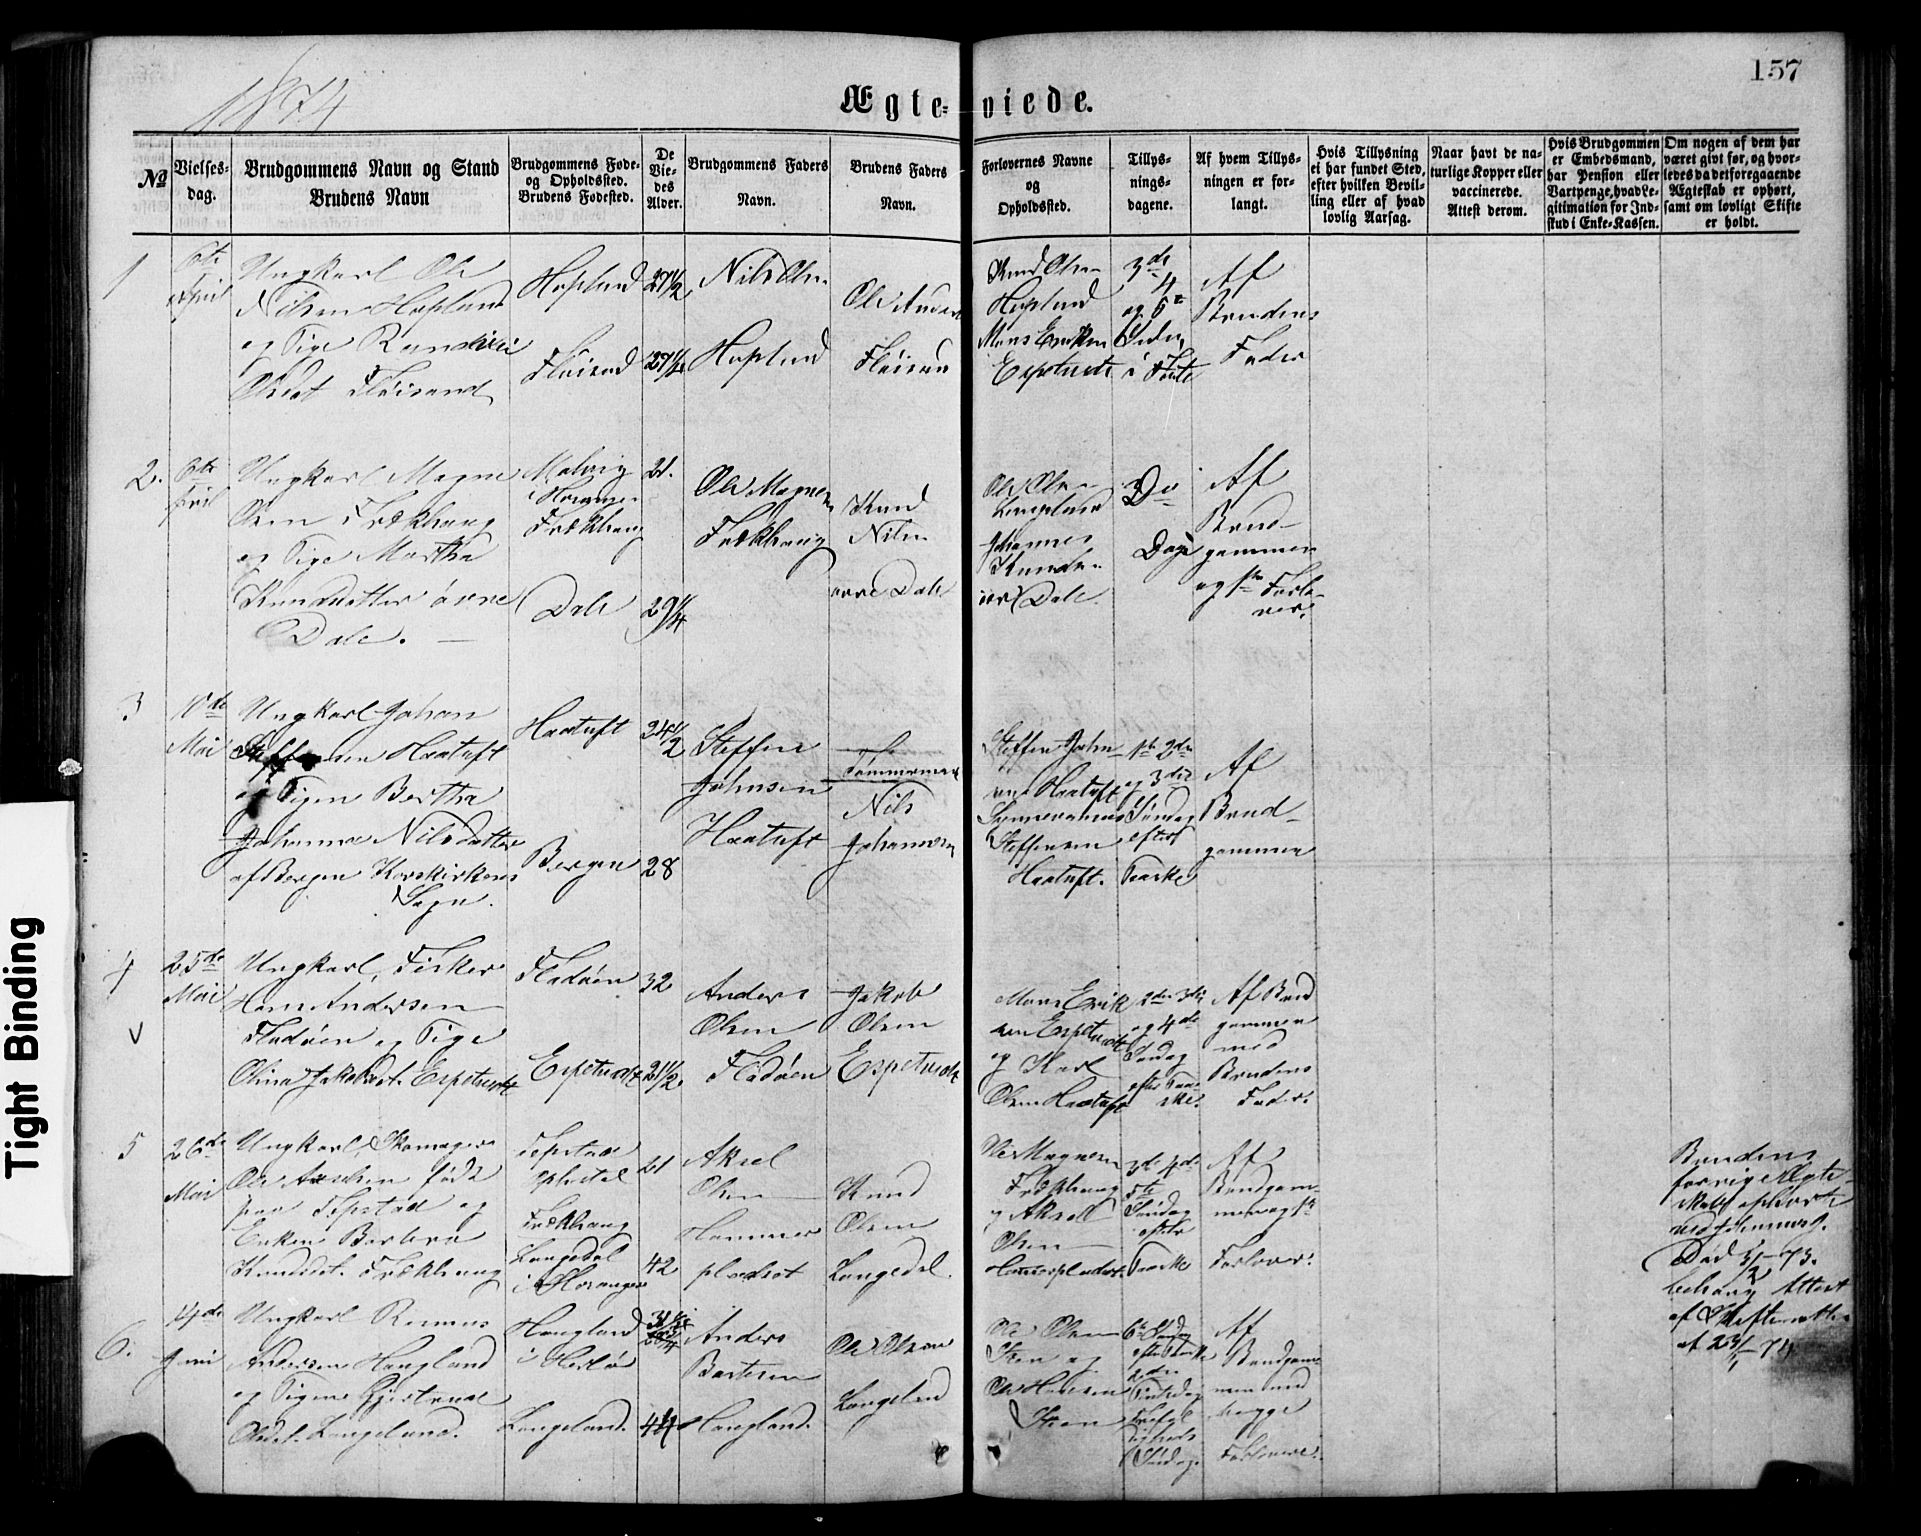 157
1874
Ægte-viede.
No
Vielses-
dag.
Brudgommens Navn og Stand
Brudens Navn
Brudgommens Føde-
og Opholdssted.
Brudens Fødested.
De
Vie-
des
Alder.
Brudgommens Faders
Navn.
Brudens Faders
Navn.
Forlovernes Navne
og
Opholdssted.
Tillys-
nings-
dagene.
Af hvem Tillys-
ningen er for-
langt.
Hvis Tillysning
ei har fundet Sted,
efter hvilken Bevil-
ling eller af hvad
lovlig Aarsag.
Naar havt de na-
turlige Kopper eller
vaccinerede.
Attest derom.
Hvis Brudgommen
er Embedsmand,
har Pension eller
Vartpenge, hvad Le-
gitimation for Ind-
skud i Enke-Kassen.
Om nogen af dem har
været givt før, og hvor-
ledes da det foregaaende
Ægteskab er ophørt,
samt om lovligt Skifte
er holdt.
1
6te
April
Ungkarl Ole
Nilsen Hopland
og Pige
Olsdt Fløisand
Hopland
Fløisand
27 1/2
27 1/4
Nils Olsen
Hopland
Ole Anders
Fløisand
Knud Olsen
Hopland
Mons Eriksen
Espetvedt
3de
4
og 5te
Søndag
i Faste
Af
Brudens
Fader
2.
6te
April
Ungkarl Magne
Olsen Frækhaug
og Pige Martha
Knudsdatter øvre
Dale.
Frækhaug
Dale
21.
29 1/4
Ole Magnesen
Frækhaug
Knud
Nilsen
øvre Dale
Ole Olsen
Johannes
Knudsen
Dale.
Do
Dage
Af
Brud-
gommen
og 1ste Forlo-
ver.
3
Mai
Ungkarl Johan
Steffensen Haatuft
og Pigen Bertha
Johanna Nilsdatter
af Bergen Korskirkens
Sogn.
Haatuft
Bergen
24 1/2
28
Steffen
Johnsen
Haatuft
Tømmermand
Nils
Johannesen
Steffen John-
sen Haatuft
Steffensen
Haatuft.
1ste 2den
og 3die
Søndag
efter
Paaske
Af
Brud-
gommen
4
25de
Mai
Ungkarl, Fisker
Hans Andersen
Fladøen og Pige
Olina Jakobsdt. Espetvedt
Fladøen
Espetvedt
32
21 1/2.
Anders
Olsen
Fladøen
Jakob
Olsen
Espetvedt
Mons Erik-
sen Espetvedt
og Karl
Olsen Haatuft
2den 3die
og 4de
Søndag
efter Paa-
ske.
Af Brud
gommen
med
Brudens
Fader.
5
26de
Mai
Ungkarl, Skomager
Ole Axelsen født
paa og
Enken Barbra
Knudsdt. Frækhaug
Frækhaug
Langedal
i Hosanger
21
42
Aksel
Olsen
Hammer
pladset
Knud
Olsen
Langedal.
Ole Magnesen
Frækhaug
og Aksel
Olsen
Hammerpladset.
3de 4de
5te
Søndag
efter
Paaske
Af
Brudgom-
men og 1ste
Forlover.
Brudens
forrige Ægte-
skab ophørt
ved
Død 3/2-73.
Attest
af Skifteretten
af 23/1-74
6.
14de
Juni
Ungkarl Rasmus
Andersen Haugland
og Pigen Gjertrud
Olsdt. Langeland.
Haugland
i Herlø
Langeland.
44
Anders
Bartesen
Haugland.
Ole Olsen
Langeland
Ole Olsen
Steen og
Ole Hansen
Steen
6te Søndag
efter Paaske
Søndag.
Af
Brudgom
men med
begge
Forlovere.
Tight Binding